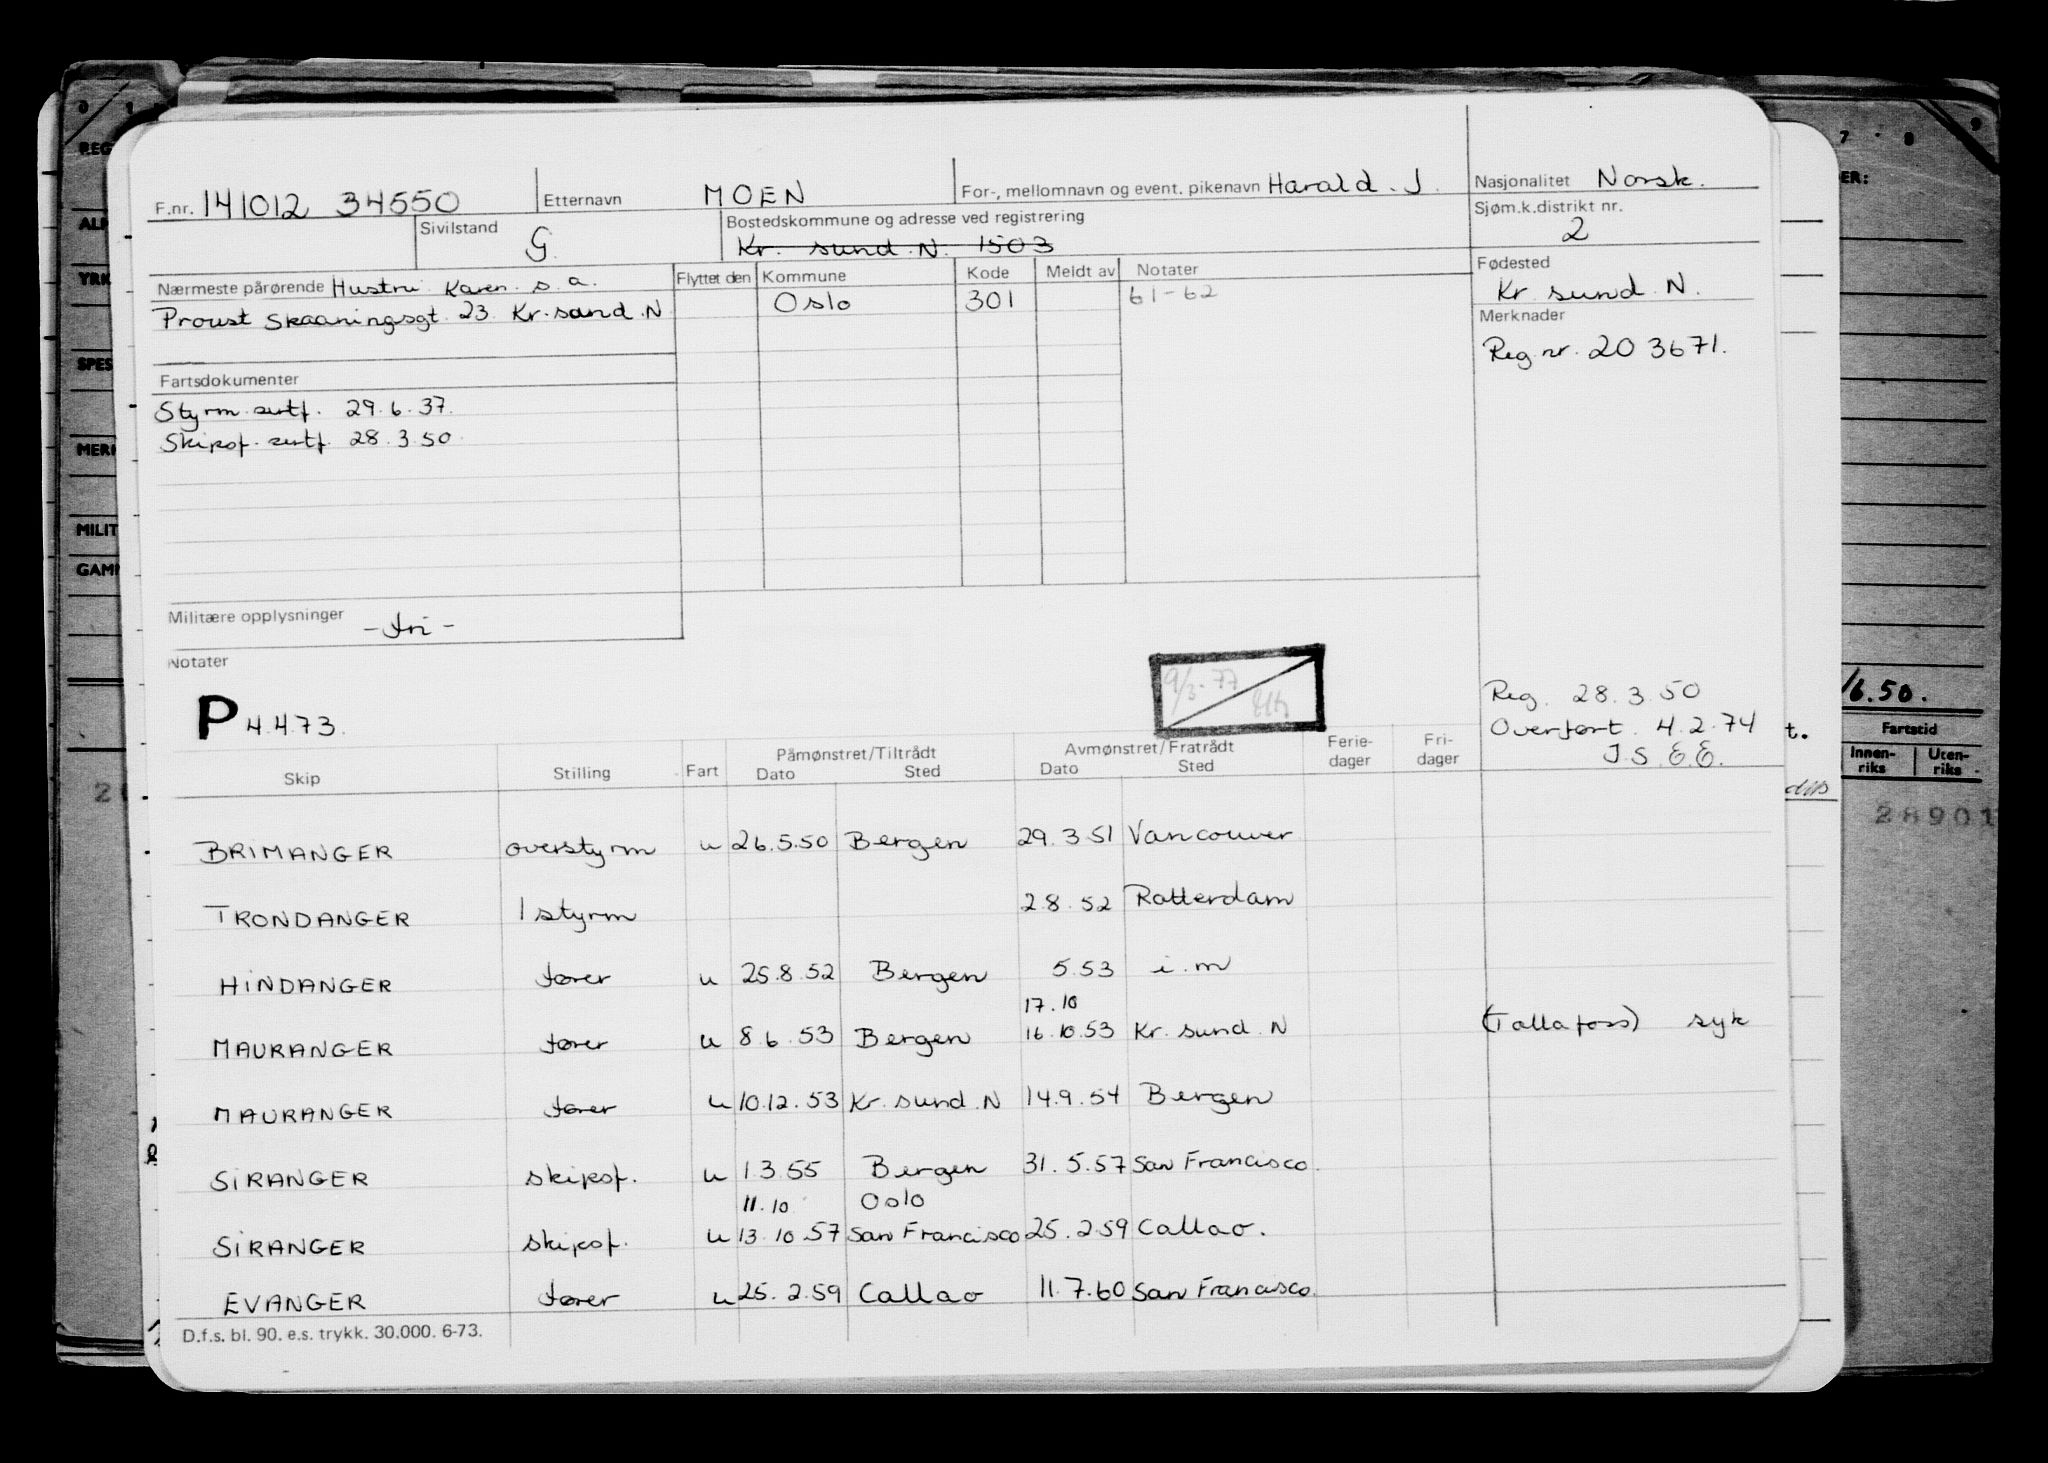 F.nr. 141012 34550 Etternavn MOEN For-, mellomnavn og event. pikenavn Harald. J. Nasjonalitet Norsk.
Sivilstand G. Bostedskommune og adresse ved registrering Kr. sund. N. 1503 Sjøm.k.distrikt nr. 2
Nærmeste pårørende Hustru Karen s. a. Flyttet den Kommune Kode Meldt av Notater Fødested
Proust Skaaningsgt 23 Kr. sund. N Oslo 301 61-62 Kr. sund. N.
Merknader
Reg nr. 203671.
Fartsdokumenter
Styrm. sertf. 29.6.37.
Skipsf. sertf. 28.3.50.
Militære opplysninger - fri -
Notater
P 4.4.73.
9/3-77
Reg. 28.3.50
Overført. 4.2.74
J.S. E.E.
Skip Stilling Fart Påmønstret/Tiltrådt Dato Sted Avmønstret/Fratrådt Dato Sted Ferie-dager Fri-dager
BRIMANGER overstyrm u 26.5.50 Bergen 29.3.51 Vancouver
TRONDANGER 1 styrm 2.8.52 Rotterdam
HINDANGER fører u 25.8.52 Bergen 5.53 i.m
17.10
MAURANGER fører u 8.6.53 Bergen 16.10.53 Kr. sund. N (Tallafoss) syk
MAURANGER fører u 10.12.53 Kr. sund. N 14.9.54 Bergen
SIRANGER skipsf. u 1.3.55 Bergen 31.5.57 San Francisco.
11.10 Oslo
SIRANGER skipsf. u 13.10.57 San Francisco 25.2.59 Callao.
EVANGER fører u 25.2.59 Callao 11.7.60 San Francisco.
D.f.s. bl. 90. e.s. trykk. 30.000. 6-73.
0 1
YRK
SPES
MERK
MILIT
7 8 9
ER:
/6.50.
Fartstid
t.
Innen-riks Uten-riks
28901